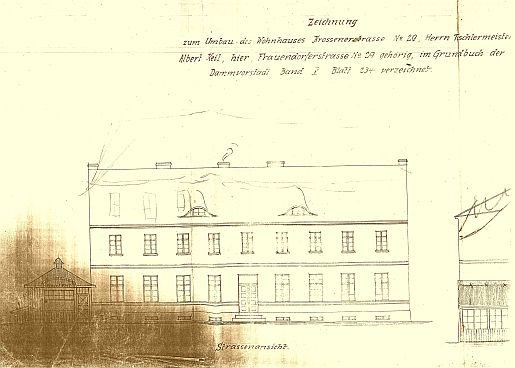 Zeichnung
zum Umbau des Wohnhauses Crossenerstrasse No 20, Herrn Tischlermeister
Albert Keil, hier, Frauendorferstrasse No 29 gehörig, im Grundbuch der
Dammvorstadt Band X Blatt 234 verzeichnet.
Strassenansicht.